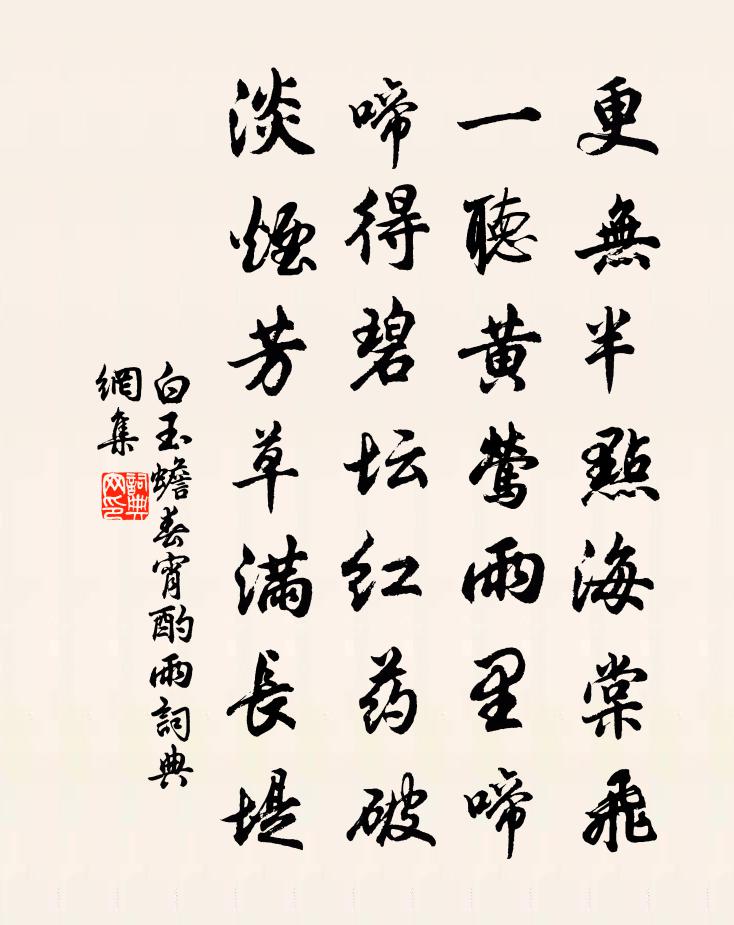 更無半點海棠飛
一聽黃鶯雨里啼
啼得碧坛红药破
淡煙芳草滿長堤
白玉蟾春宵酌雨詞典
網集
詞典
网印